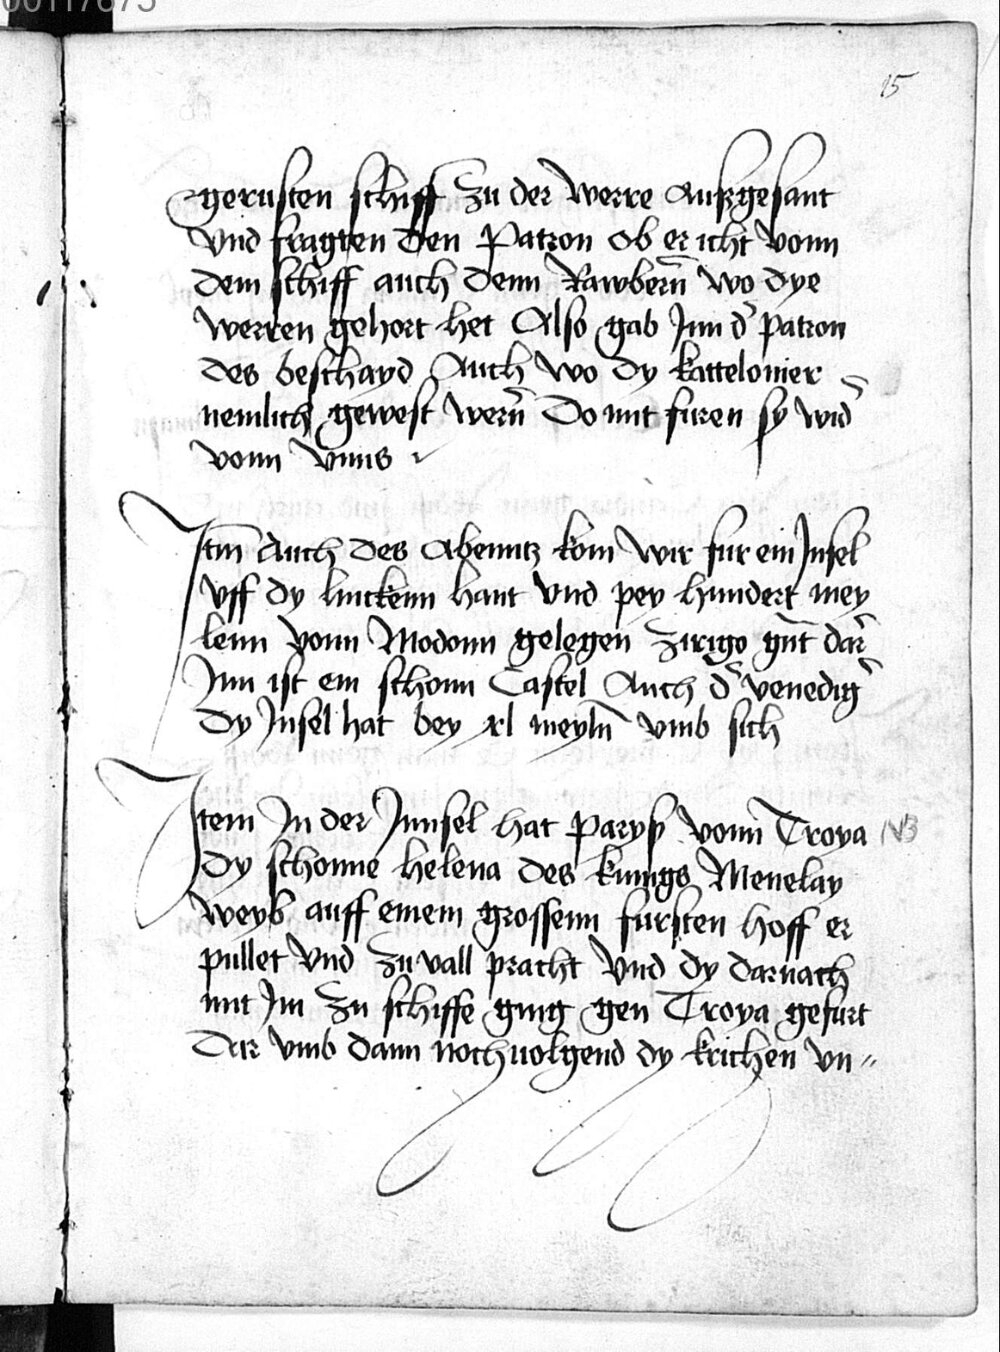 00117675
15
gerusten schiff zu der werre außgesant
vnd fragten den Patron ob er icht vonn
dem schiff auch denn Rawbern̄ wo dye
werren gehort het Also gab Inn d̄ patron
des beschayd Auch wo dy kattelonier
nemlich gewest wern̄ Do mit furen sy wid̄
vonn vnns
Itm̄ Auch des Abenntz kom wir fur ein Insel
vff dy linckenn hant vnd pey hundert mey
lenn vonn Modonn gelegen zirigo gn̄t dar̄
Inn ist ein schonn Castel Auch d̄ venediḡ
dy Insel hat bey xl meyln̄ vmb sich
Item In der Innsel hat parysz vonn Troya NB
dy schonne helena des kunigs Menelay
weyb auff einem grossenn fursten hoff er
pullet vnd zu vall pracht vnd dy darnach
mit Im zu schiffe ging gen Troya gefurt
Dar vmb dann nochuolgend dy krichen vn〃